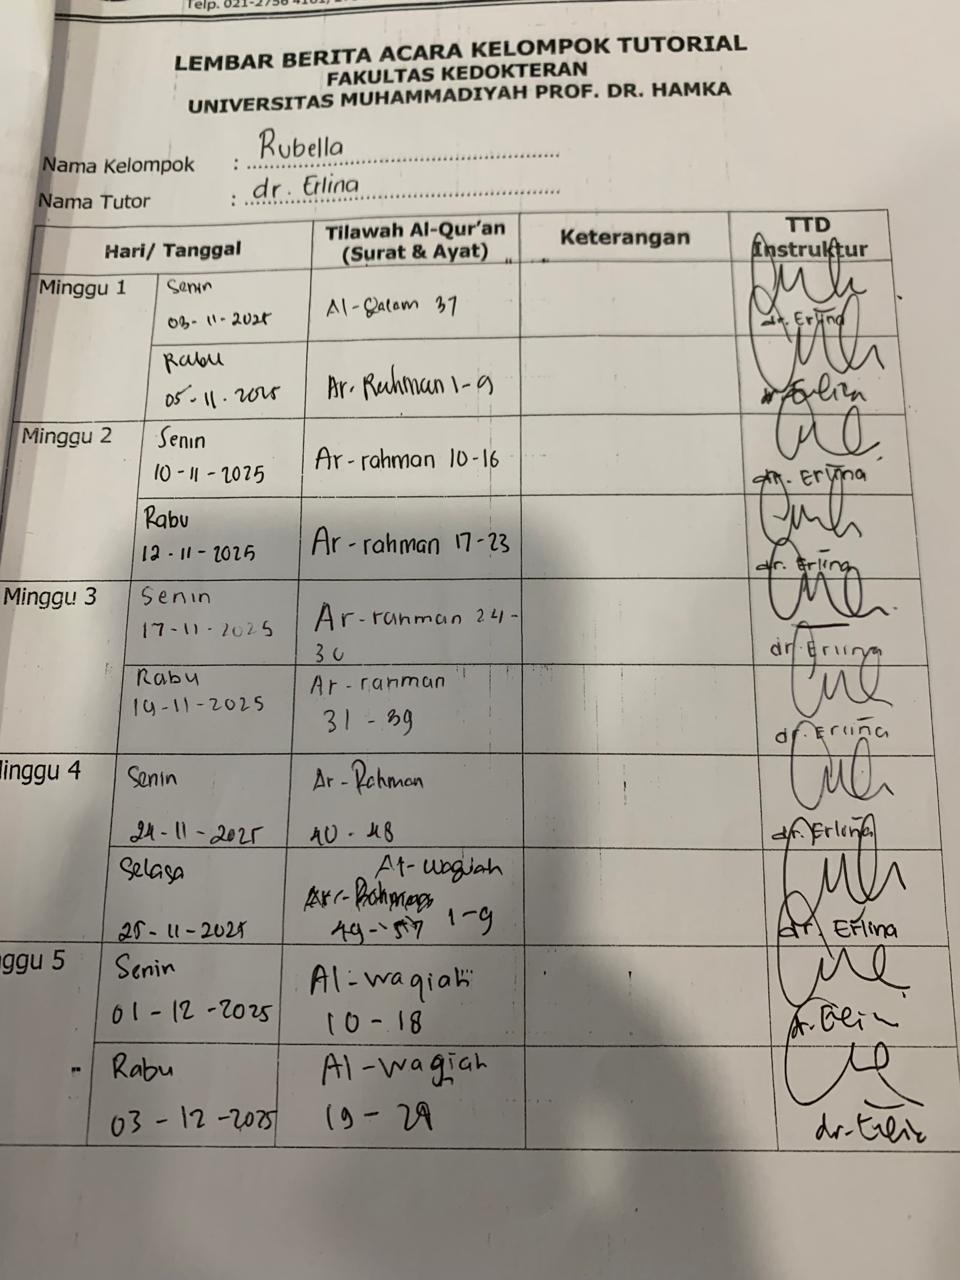 Telp. 021-2756
LEMBAR BERITA ACARA KELOMPOK TUTORIAL
FAKULTAS KEDOKTERAN
UNIVERSITAS MUHAMMADIYAH PROF. DR. HAMKA
Nama Kelompok : Rubella
Nama Tutor : dr. Erlina
Hari/ Tanggal Tilawah Al-Qur'an (Surat & Ayat) Keterangan TTD Instruktur
Minggu 1 Senin
03-11-2025 Al-Qalam 37 dr. Erlina
Rabu
05-11-2025 Ar-Rahman 1-9
Minggu 2 Senin
10-11-2025 Ar-rahman 10-16 dr. Erlina
Rabu
12-11-2025 Ar-rahman 17-23 dr. Erlina
Minggu 3 Senin
17-11-2025 Ar-rahman 24-
30 dr. Erlina
Rabu Ar-rahman
19-11-2025 31-39 dr. Erlina
inggu 4 Senin Ar-Rahman
24-11-2025 40-48 dr. Erlina
Selasa At-waqiah
25-11-2025 1-9 dr. Erlina
ggu 5 Senin Al-waqiah
01-12-2025 10-18
Rabu Al-waqiah
03-12-2025 19-